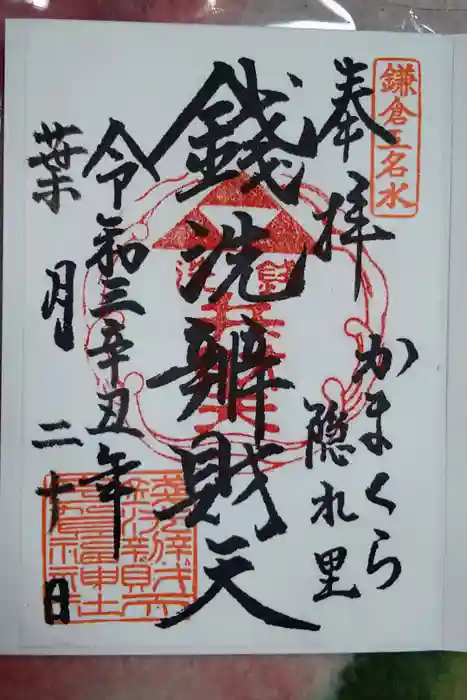 鎌倉五名水
奉拝
かまくら
隠れ里
銭洗
銭洗辨財天
令和三辛丑年
葉月二十日